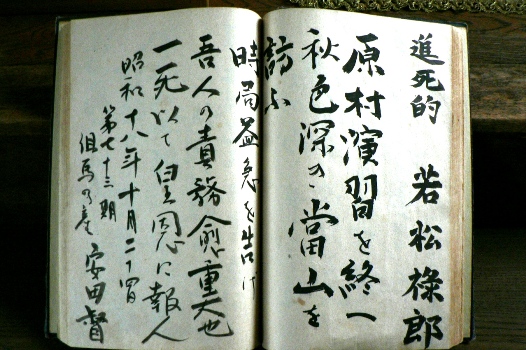 進死的 若松祿郎
原村演習を終へ
秋色深き當山を
訪ふ
時局益急を告げ
吾人の責務愈重大也
一死以て皇恩に報人
昭和十八年十月二十四日
第七十三期
但馬の産 安田督